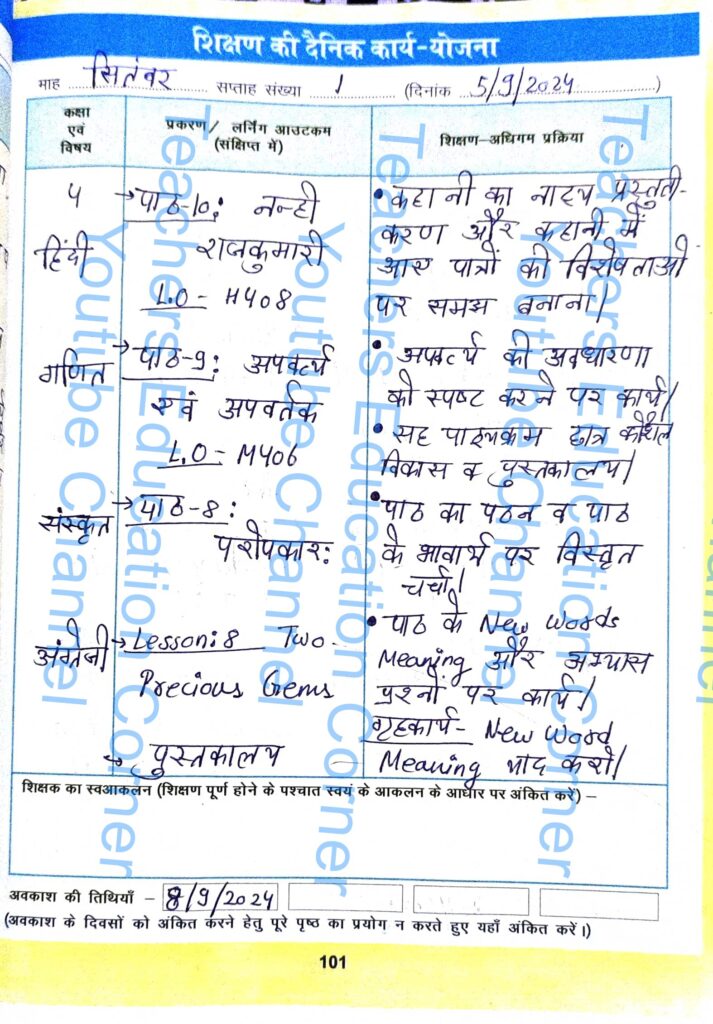 शिक्षण की दैनिक कार्य-योजना
माह सितंबर सप्ताह संख्या 1 (दिनांक 5/9/2024)
कक्षा
एवं
विषय
प्रकरण / लर्निंग आउटकम
(संक्षिप्त में)
शिक्षण-अधिगम प्रक्रिया
५
हिंदी
→पाठ-10: नन्ही
राजकुमारी
L.O - H408
• कहानी का नाट्य प्रस्तुती-
करण और कहानी में
आए पात्रों की विशेषताओं
पर समझ बनाना।
गणित
→पाठ-9: अपवर्त्य
एवं अपवर्तक
L.O - M406
• अपवर्त्य की अवधारणा
को स्पष्ट करने पर कार्य।
• सह पाठ्यक्रम छात्र कौशल
विकास व पुस्तकालय।
संस्कृत
→पाठ-8:
परोपकार:
• पाठ का पठन व पाठ
के भावार्थ पर विस्तृत
चर्चा।
अंग्रेजी
→Lesson:8 Two
Precious Gems
• पाठ के New Words
Meaning और अभ्यास
प्रश्नों पर कार्य।
→ पुस्तकालय
गृहकार्य- New Word
Meaning याद करो।
शिक्षक का स्वआकलन (शिक्षण पूर्ण होने के पश्चात स्वयं के आकलन के आधार पर अंकित करें) –
अवकाश की तिथियाँ – 8/9/2024
(अवकाश के दिवसों को अंकित करने हेतु पूरे पृष्ठ का प्रयोग न करते हुए यहाँ अंकित करें।)
101
Teachers Education Corner
Youtibe Channel
Teachers Education Corner
Youtibe Channel